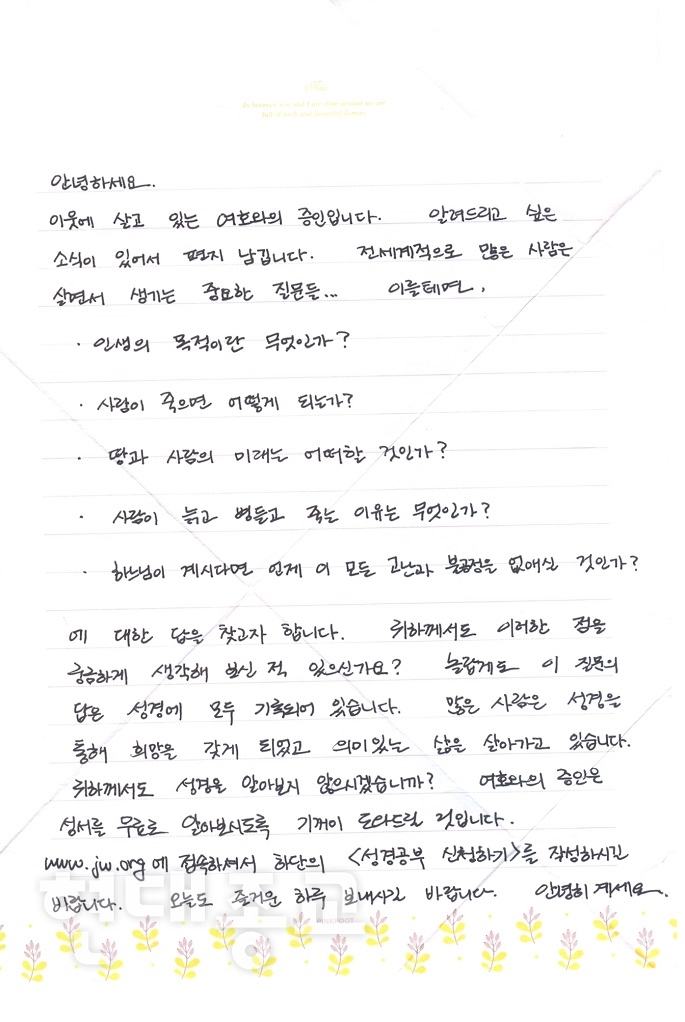 안녕하세요.
이웃에 살고 있는 여호와의 증인입니다. 알려드리고 싶은
소식이 있어서 편지 남깁니다. 전세계적으로 많은 사람은
살면서 생기는 중요한 질문들... 이를테면,
· 인생의 목적이란 무엇인가?
· 사람이 죽으면 어떻게 되는가?
· 땅과 사람의 미래는 어떠할 것인가?
· 사람이 늙고 병들고 죽는 이유는 무엇인가?
· 하느님이 계시다면 언제 이 모든 고난과 불공정을 없애실 것인가?
에 대한 답을 찾고자 합니다. 귀하께서도 이러한 점을
궁금하게 생각해 보신 적 있으신가요? 놀랍게도 이 질문의
답은 성경에 모두 기록되어 있습니다. 많은 사람은 성경을
통해 희망을 갖게 되었고 의미있는 삶을 살아가고 있습니다.
귀하께서도 성경을 알아보지 않으시겠습니까? 여호와의 증인은
성서를 무료로 알아보시도록 기꺼이 도와드릴 것입니다.
www.jw.org 에 접속하셔서 하단의 <성경공부 신청하기>를 작성하시길
바랍니다. 오늘도 즐거운 하루 보내시길 바랍니다. 안녕히 계세요.
현대종교